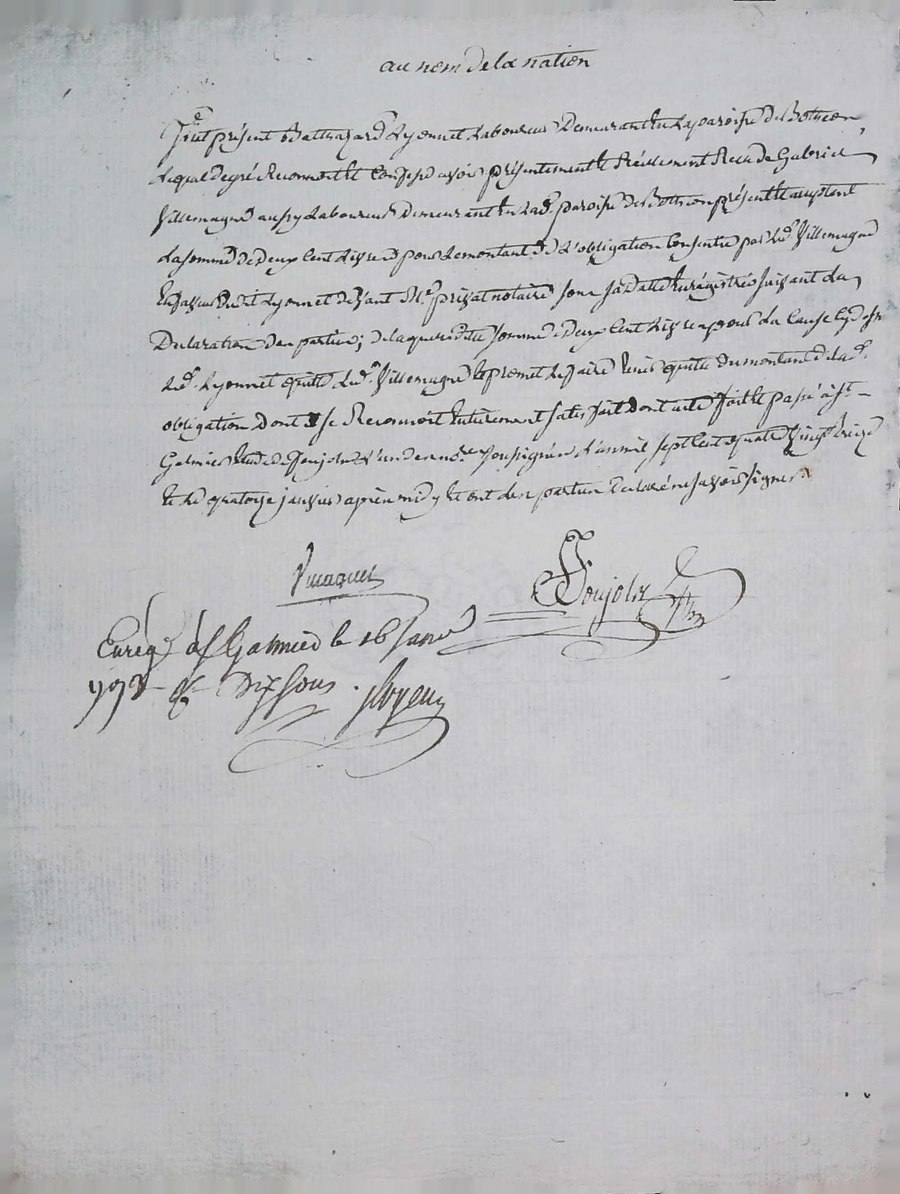 au nom de la nation
fut présent Balthazard Lyonnet Laboureur Demeurant En La paroisse de Bothéon
Lequel de gré Reconnoit Et Confesse avoir présentement Et Réellement Recu de Gabriel
Villemagne aussy Laboureur Demeurant En Lad. paroisse de Bothéon présent Et acceptant
La somme de deux Cent Livres pour Le montant de L'obligation Consentie par Led. Villemagne
En faveur dudit Lyonnet devant Me privat notaire sous sa datte Enrégistrée suivant La
Déclaration des parties; de laquelle ditte somme de deux Cent Livres pour La Cause Cy dessus
Led. Lyonnet quitte Led. Villemagne Et promet Le faire tenir quitte du montant de Lad.
obligation dont il se Reconnoit Entierement satisfait dont acte fait Et passé à St
Galmier Etude de Soujols L'un des nores soussignés L'an mil sept Cent quatre Vingt treize
Et Le quatorze janvier après midy Et ont Les parties déclaré ne savoir signer
Soujols
Enrég à St Galmier le 16 janv
1793 R dix sous.